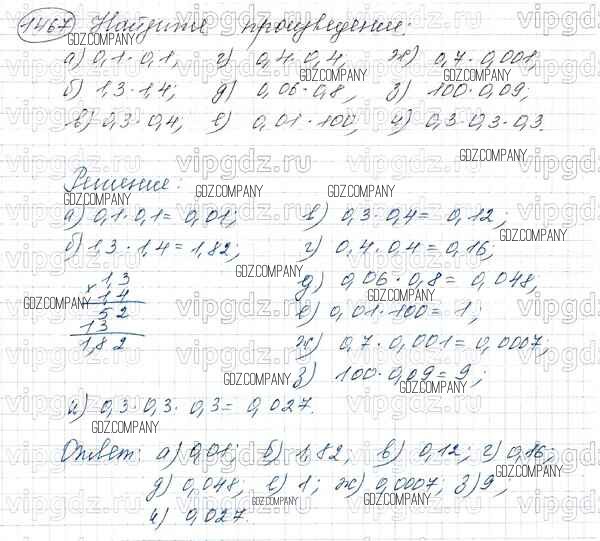 1467 Найдите произведение:
а) 0,1 · 0,1; г) 0,4 · 0,4, ж) 0,7 · 0,001;
б) 1,3 · 1,4; д) 0,06 · 0,8, з) 100 · 0,09;
в) 0,3 · 0,4; е) 0,01 · 100, и) 0,3 · 0,3 · 0,3.
Решение:
а) 0,1 · 0,1 = 0,01; в) 0,3 · 0,4 = 0,12;
б) 1,3 · 1,4 = 1,82; г) 0,4 · 0,4 = 0,16;
× 1,3 д) 0,06 · 0,8 = 0,048;
1,4 е) 0,01 · 100 = 1;
52
13 ж) 0,7 · 0,001 = 0,0007;
1,82 з) 100 · 0,09 = 9;
и) 0,3 · 0,3 · 0,3 = 0,027.
Ответ: а) 0,01; б) 1,82, в) 0,12; г) 0,16;
д) 0,048, е) 1; ж) 0,0007, з) 9,
и) 0,027.
GDZ.COMPANY
vipgdz.ru